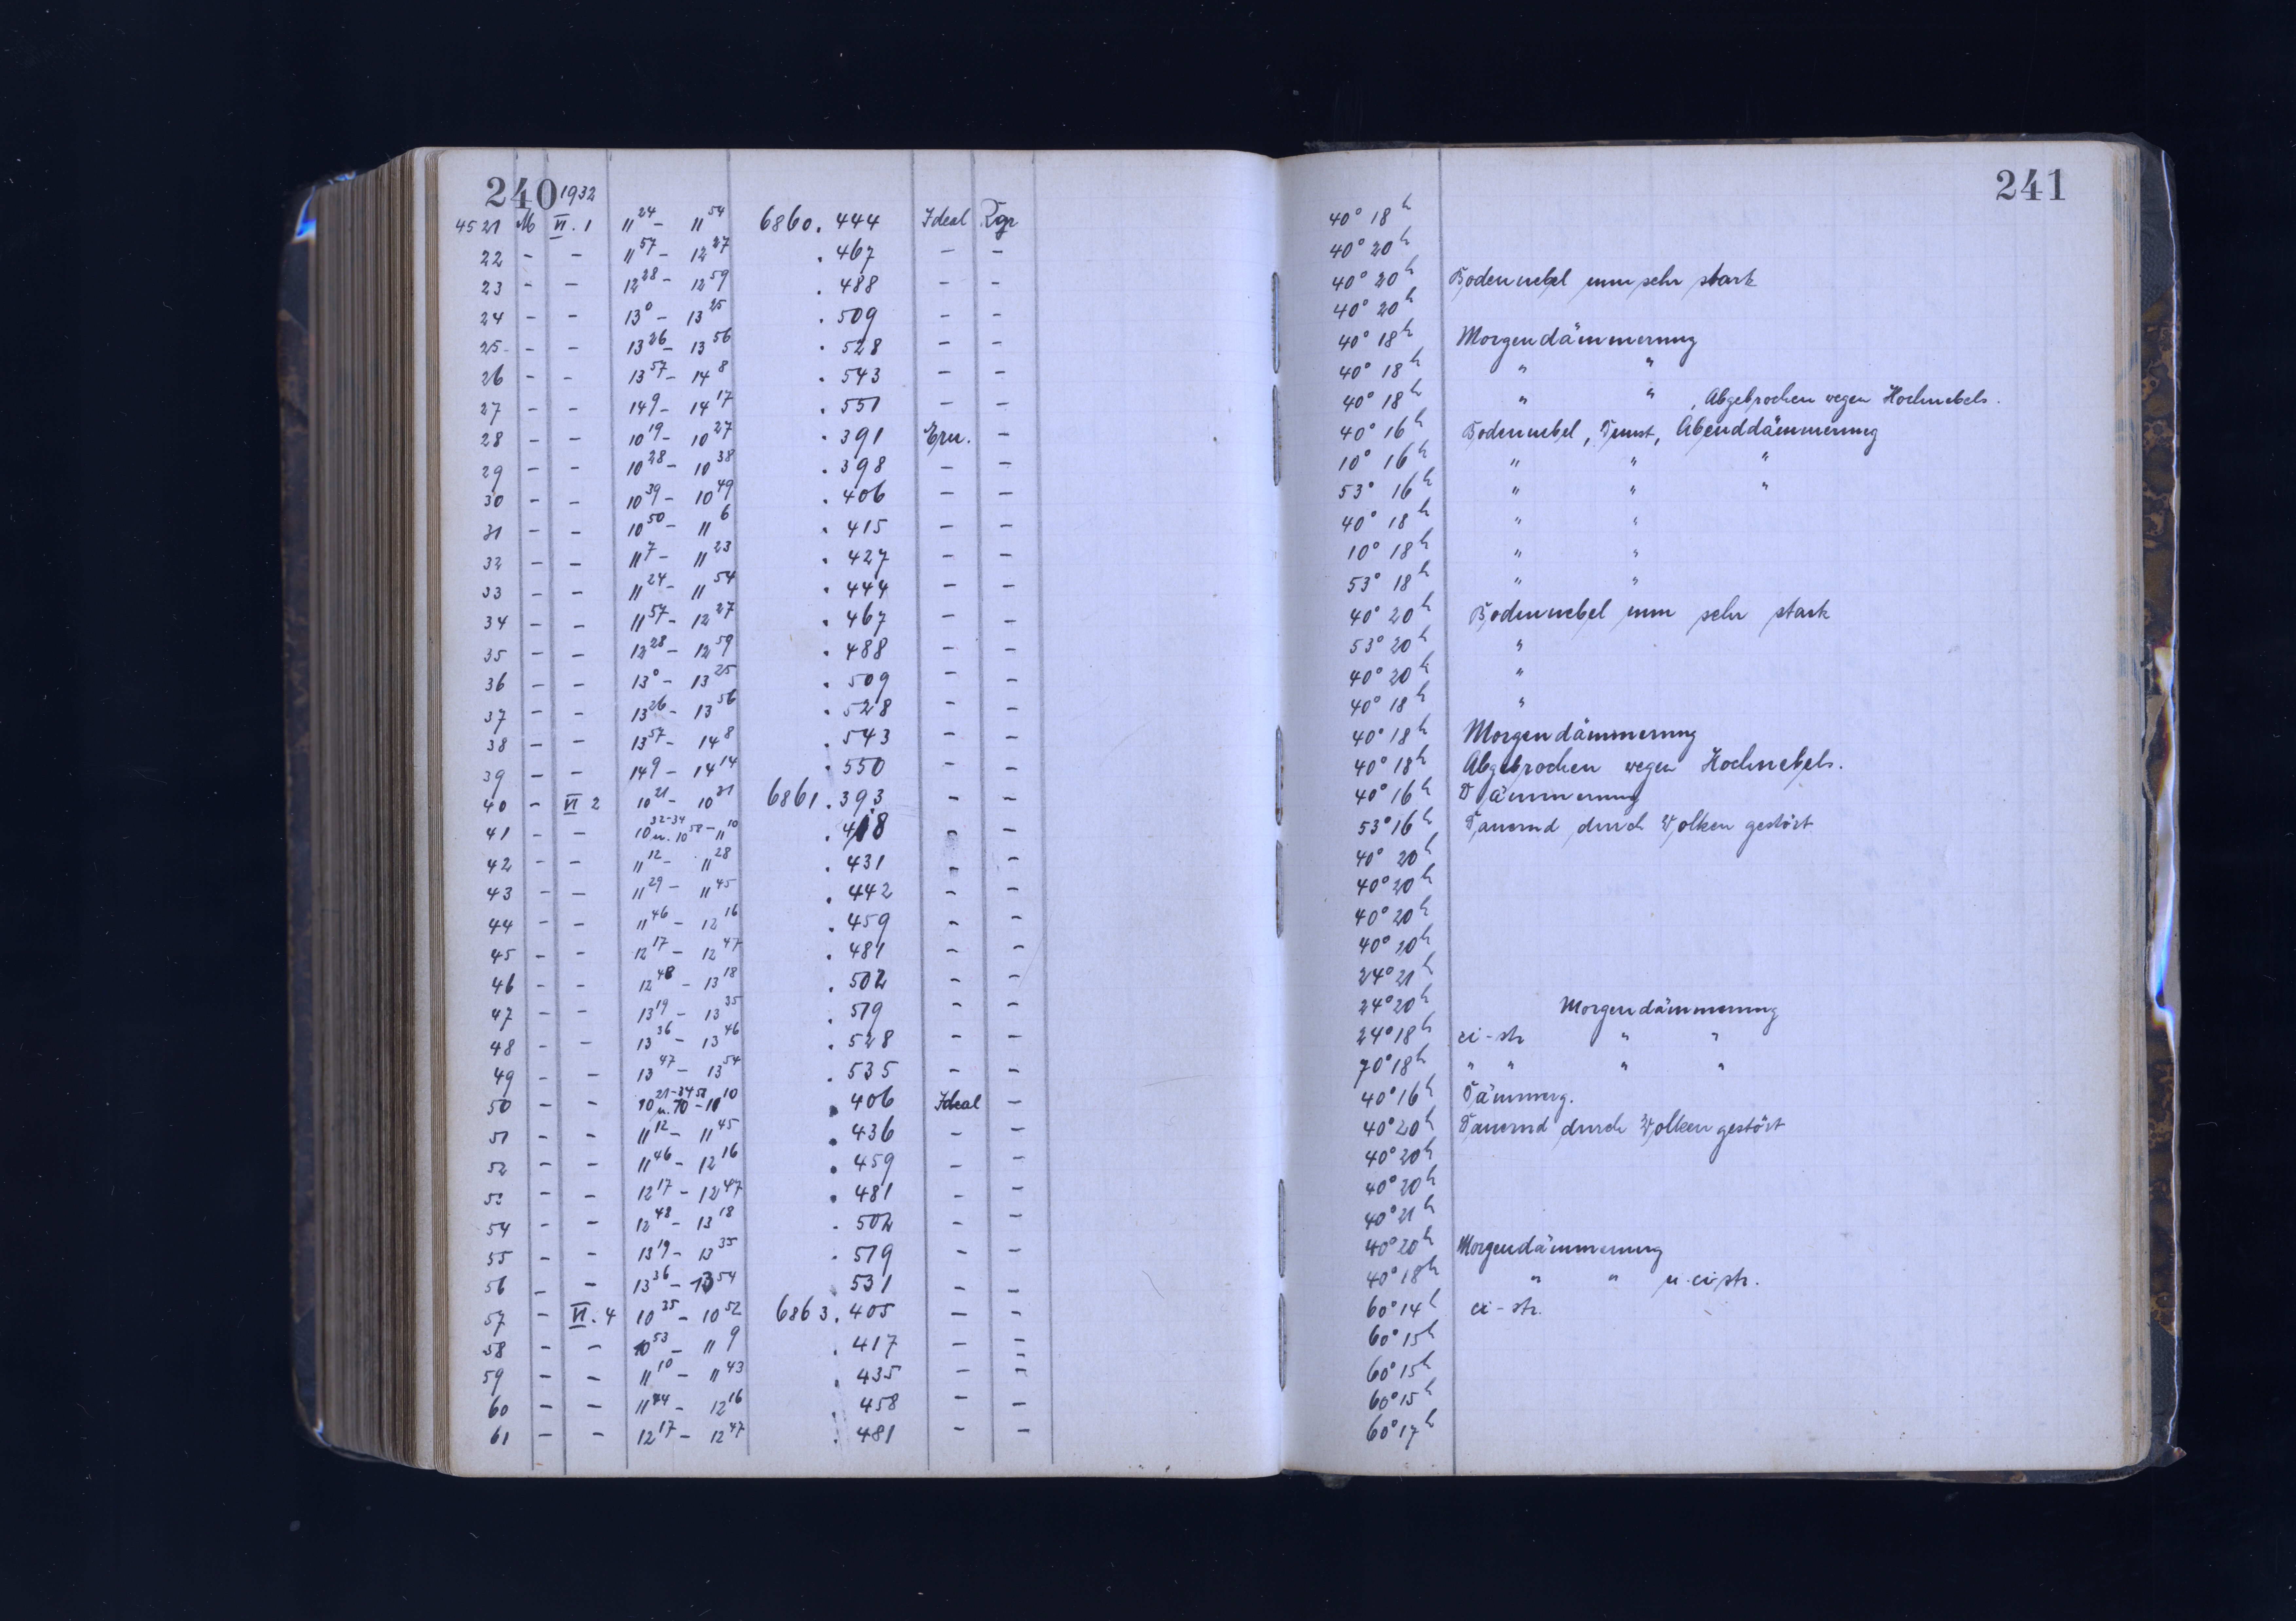 240 1932
4521 M VI. 1 11 24 - 11 54 6860. 444 Ideal Tgr
22 - - 11 57 - 12 27 . 467 - -
23 - - 12 28 - 12 59 . 488 - -
24 - - 13 0 - 13 25 . 509 - -
25 - - 13 26 - 13 56 . 528 - -
26 - - 13 57 - 14 8 . 543 - -
27 - - 14 9 - 14 17 . 551 - -
28 - - 10 19 - 10 27 . 391 Ern. -
29 - - 10 28 - 10 38 . 398 - -
30 - - 10 39 - 10 49 . 406 - -
31 - - 10 50 - 11 6 . 415 - -
32 - - 11 7 - 11 23 . 427 - -
33 - - 11 24 - 11 54 . 444 - -
34 - - 11 57 - 12 27 . 467 - -
35 - - 12 28 - 12 59 . 488 - -
36 - - 13 0 - 13 25 . 509 - -
37 - - 13 26 - 13 56 . 528 - -
38 - - 13 57 - 14 8 . 543 - -
39 - - 14 9 - 14 14 . 550 - -
40 - VI 2 10 21 - 10 31 6861. 393 - -
41 - - 10 32-34 u. 10 58 - 11 10 . 418 - -
42 - - 11 12 - 11 28 . 431 - -
43 - - 11 29 - 11 45 . 442 - -
44 - - 11 46 - 12 16 . 459 - -
45 - - 12 17 - 12 47 . 481 - -
46 - - 12 48 - 13 18 . 502 - -
47 - - 13 19 - 13 35 . 519 - -
48 - - 13 36 - 13 46 . 528 - -
49 - - 13 47 - 13 54 . 535 - -
50 - - 10 21-34 u. 10 58 - 11 10 . 406 Ideal -
51 - - 11 12 - 11 45 . 436 - -
52 - - 11 46 - 12 16 . 459 - -
53 - - 12 17 - 12 47 . 481 - -
54 - - 12 48 - 13 18 . 502 - -
55 - - 13 19 - 13 35 . 519 - -
56 - - 13 36 - 13 54 . 531 - -
57 - VI. 4 10 35 - 10 52 6863. 405 - -
58 - - 10 53 - 11 9 . 417 - -
59 - - 11 10 - 11 43 . 435 - -
60 - - 11 44 - 12 16 . 458 - -
61 - - 12 17 - 12 47 . 481 - -
241
40° 18h
40° 20h
40° 20h Bodennebel nun sehr stark
40° 20h
40° 18h Morgendämmerung
40° 18h " "
40° 18h " " , Abgebrochen wegen Hochnebels.
40° 16h Bodennebel, Dunst, Abenddämmerung
10° 16h " " "
53° 16h " " "
40° 18h " "
10° 18h " "
53° 18h " "
40° 20h Bodennebel nun sehr stark
53° 20h "
40° 20h "
40° 18h "
40° 18h Morgendämmerung
40° 18h Abgebrochen wegen Hochnebels.
40° 16h Dämmerung
53° 16h Dauernd durch Wolken gestört
40° 20h
40° 20h
40° 20h
40° 20h
24° 21h
24° 20h Morgendämmerung
24° 18h ci-str " "
70° 18h " " " "
40° 16h Dämmerg.
40° 20h Dauernd durch Wolken gestört
40° 20h
40° 20h
40° 21h
40° 20h Morgendämmerung
40° 18h " " u. ci-str.
60° 14h ci-str.
60° 15h
60° 15h
60° 15h
60° 17h